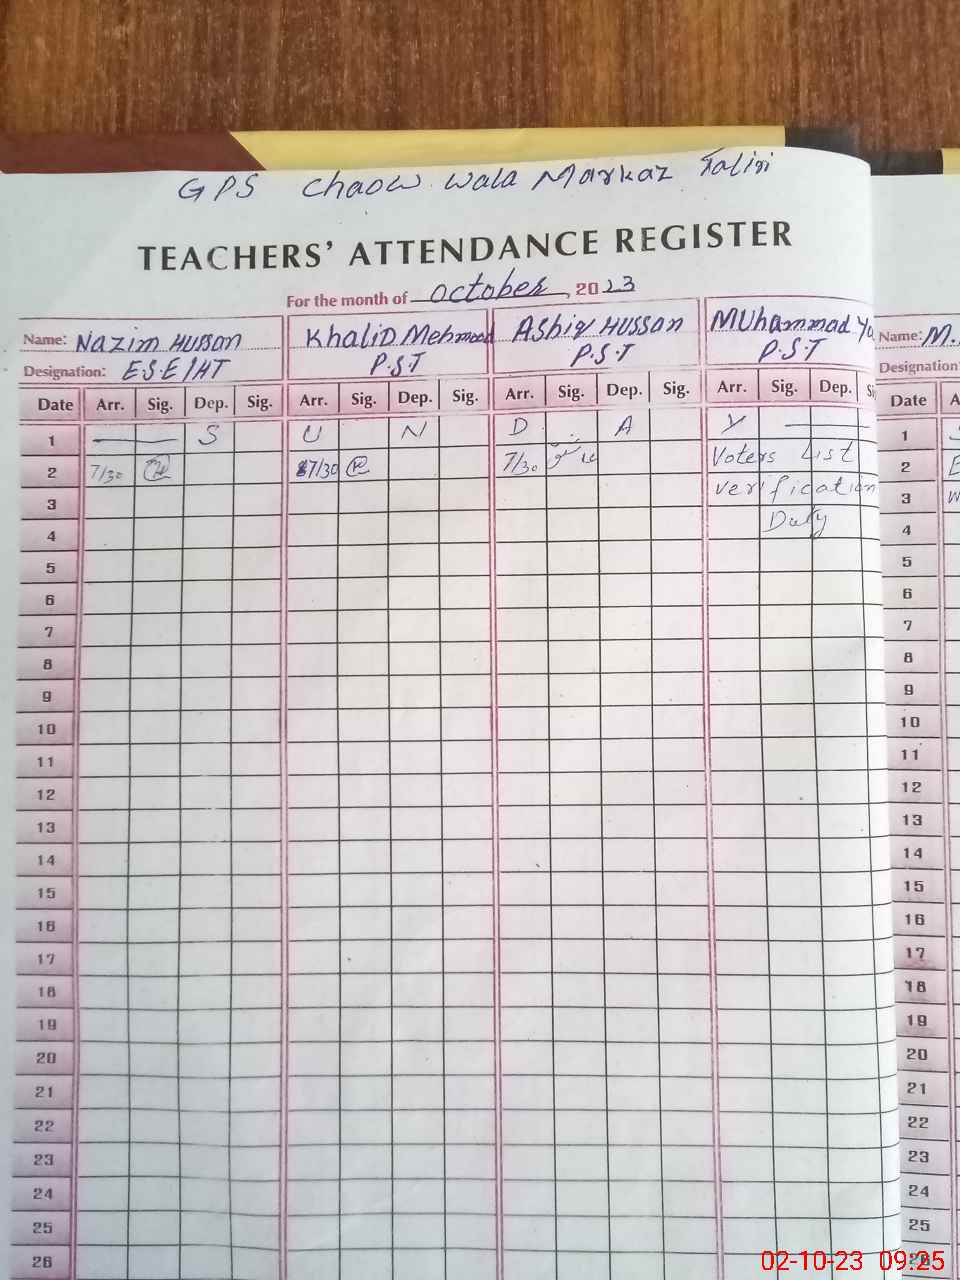 GPS Chaow wala Markaz Taliri
TEACHERS' ATTENDANCE REGISTER
For the month of October, 2023
Name: Nazim Hussan Khalid Mehmood Ashiq Hussan Muhammad Ya Name: M.
Designation: E.S.E/HT P.S.T P.S.T P.S.T Designation
Date Arr. Sig. Dep. Sig. Arr. Sig. Dep. Sig. Arr. Sig. Dep. Sig. Arr. Sig. Dep. Si Date A
1 S U N D A Y 1 S
2 7/30 7/30 7/30 Voters List 2 E
3 verification 3 W
4 Duty 4
5 5
6 6
7 7
8 8
9 9
10 10
11 11
12 12
13 13
14 14
15 15
16 16
17 17
18 18
19 19
20 20
21 21
22 22
23 23
24 24
25 25
26 26
02-10-23 09:25